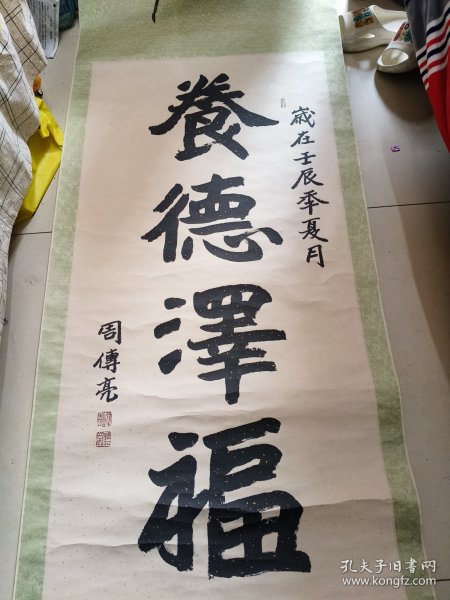 歲在壬辰年夏月
養德澤福
周傳亮
孔夫子旧书网
www.kongfz.com